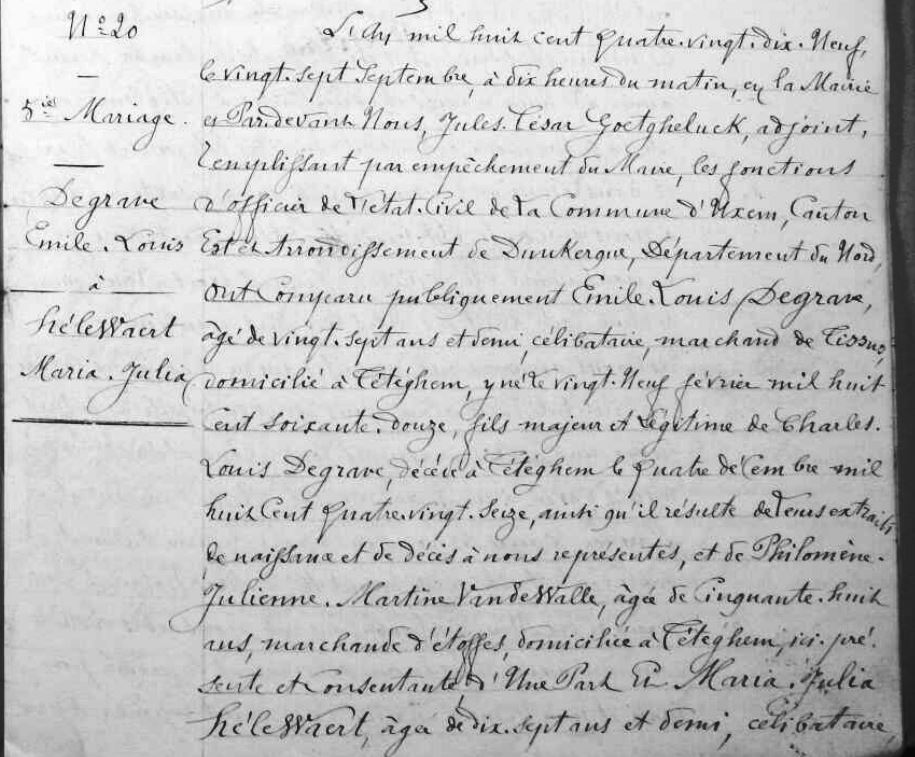 N° 20
—
8ie Mariage.
—
Degrave
Emile. Louis
à
héleWaert
Maria. Julia
L'an mil huit cent quatre. vingt. dix. Neuf,
le vingt. sept Septembre, à dix heures du matin, en la Mairie
et Par. devant Nous, Jules. César Goetgheluck, adjoint,
remplissant par empêchement du Maire, les fonctions
d'officier de l'état. Civil de la Commune d'Uxem, Canton
Est et Arrondissement de Dunkerque, Département du Nord,
ont Comparu publiquement Emile. Louis Degrave,
âgé de vingt. sept ans et demi, célibataire, marchand de Tissus,
domicilié à Tétéghem, y né le vingt. Neuf février mil huit
Cent soixante. douze, fils majeur et Légitime de Charles.
Louis Degrave, décédé à Tétéghem le quatre décembre mil
huit Cent quatre. vingt. Seize, ainsi qu'il résulte de leurs extraits
de naissance et de décès à nous représentés, et de Philomène.
Julienne. Martine VandeWalle, âgée de Cinquante. huit
ans, marchande d'étoffes, domiciliée à Tétéghem, ici. pré.
sente et Consentante d'Une Part Et Maria. Julia
héleWaert, âgée de dix. sept ans et demi, célibataire,